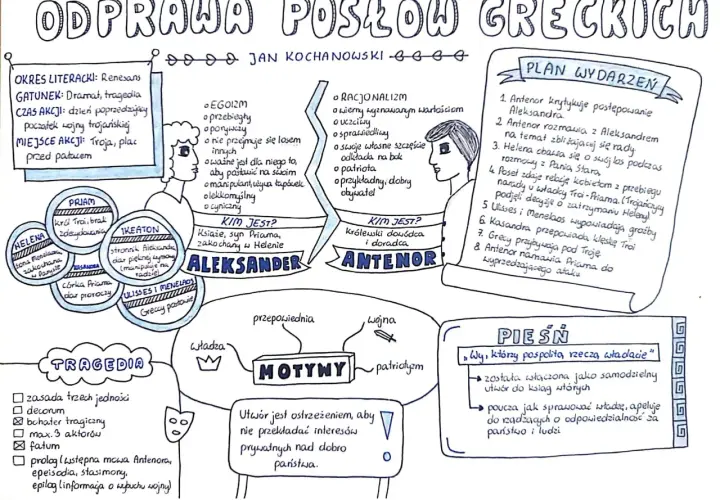 ODPRAWA POSŁÓW GRECKICH
JAN KOCHANOWSKI
OKRES LITERACKI: Renesans
GATUNEK: Dramat, tragedia
CZAS AKCJI: dzień poprzedzający
początek wojny trojańskiej
MIEJSCE AKCJI: Troja, plac
przed pałacem
o EGOIZM
o przebiegły
o porywczy
o nie przejmuje się losem
innych
o ważne jest dla niego to,
aby postawić na swoim
o manipulant, używa łapówek
o lekkomyślny
o cyniczny
KIM JEST?
Książe, syn Priama,
zakochany w Helenie
ALEKSANDER
o RACJONALIZM
o wierny wyznawanym wartościom
o uczciwy
o sprawiedliwy
o swoje własne szczęście
odkłada na bok
o patriota
o przykładny, dobry
obywatel
KIM JEST?
królewski dowódca
i doradca
ANTENOR
PLAN WYDARZEŃ
1. Antenor krytykuje postępowanie
Aleksandra.
2. Antenor rozmawia z Aleksandrem
na temat zbliżającej się rady
3. Helena obawia się o swój los podczas
rozmowy z Panią Starą
4. Poseł zdaje relację kobietom z przebiegu
narady u władcy Troi - Priama. (Trojańczycy
podjęli decyzję o zatrzymaniu Heleny)
5. Ulisses i Menelaos wypowiadają groźby
6. Kasandra przepowiada klęskę Troi
7. Grecy przybywają pod Troję
8. Antenor namawia Priama do
wyprzedzającego ataku
PRIAM
król Troi, brak
zdecydowania
HELENA
żona Menelaosa
zakochana
w Parysie
KASANDRA
córka Priama
dar proroczy
IKEATON
stronnik Aleksandra,
dar pięknej wymowy
(manipuluje na
radzie)
ULISSES I MENELAOS
Greccy posłowie
TRAGEDIA
zasada trzech jedności
decorum
bohater tragiczny
max. 3 aktorów
fatum
prolog (wstępna mowa Antenora,
epeisodia, stasimony,
epilog (informacja o wybuchu wojny)
przepowiednia
wojna
władza
patriotyzm
MOTYWY
Utwór jest ostrzeżeniem, aby
nie przekładać interesów
prywatnych nad dobro
państwa.
PIEŚŃ
"Wy, którzy pospolitą rzeczą władacie"
została włączona jako samodzielny
utwór do ksiąg wtórych
poucza jak sprawować władzę, apeluje
do rządzących o odpowiedzialność za
państwo i ludzi